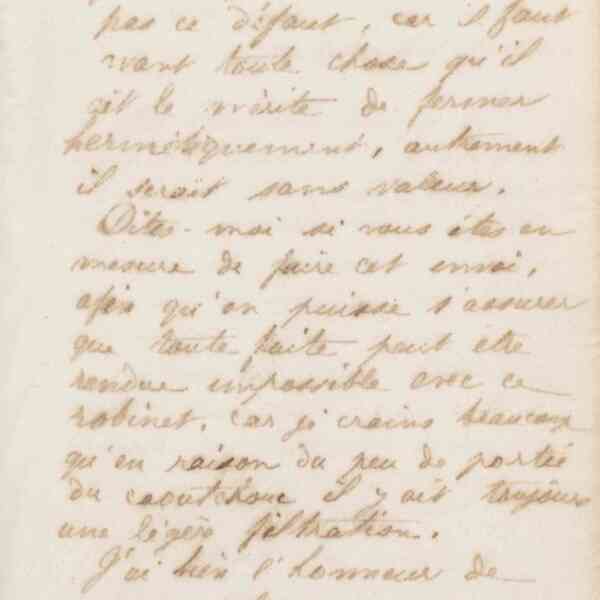 pas ce défaut, car il faut
avant toute chose qu'il
ait le mérite de fermer
hermétiquement, autrement
il serait sans valeur.
Dites-moi si vous êtes en
mesure de faire cet envoi,
afin qu'on puisse s'assurer
que toute fuite peut être
rendue impossible avec ce
robinet, car je crains beaucoup
qu'en raison du peu de portée
du caoutchouc il y ait toujours
une légère filtration.
J'ai bien l'honneur de